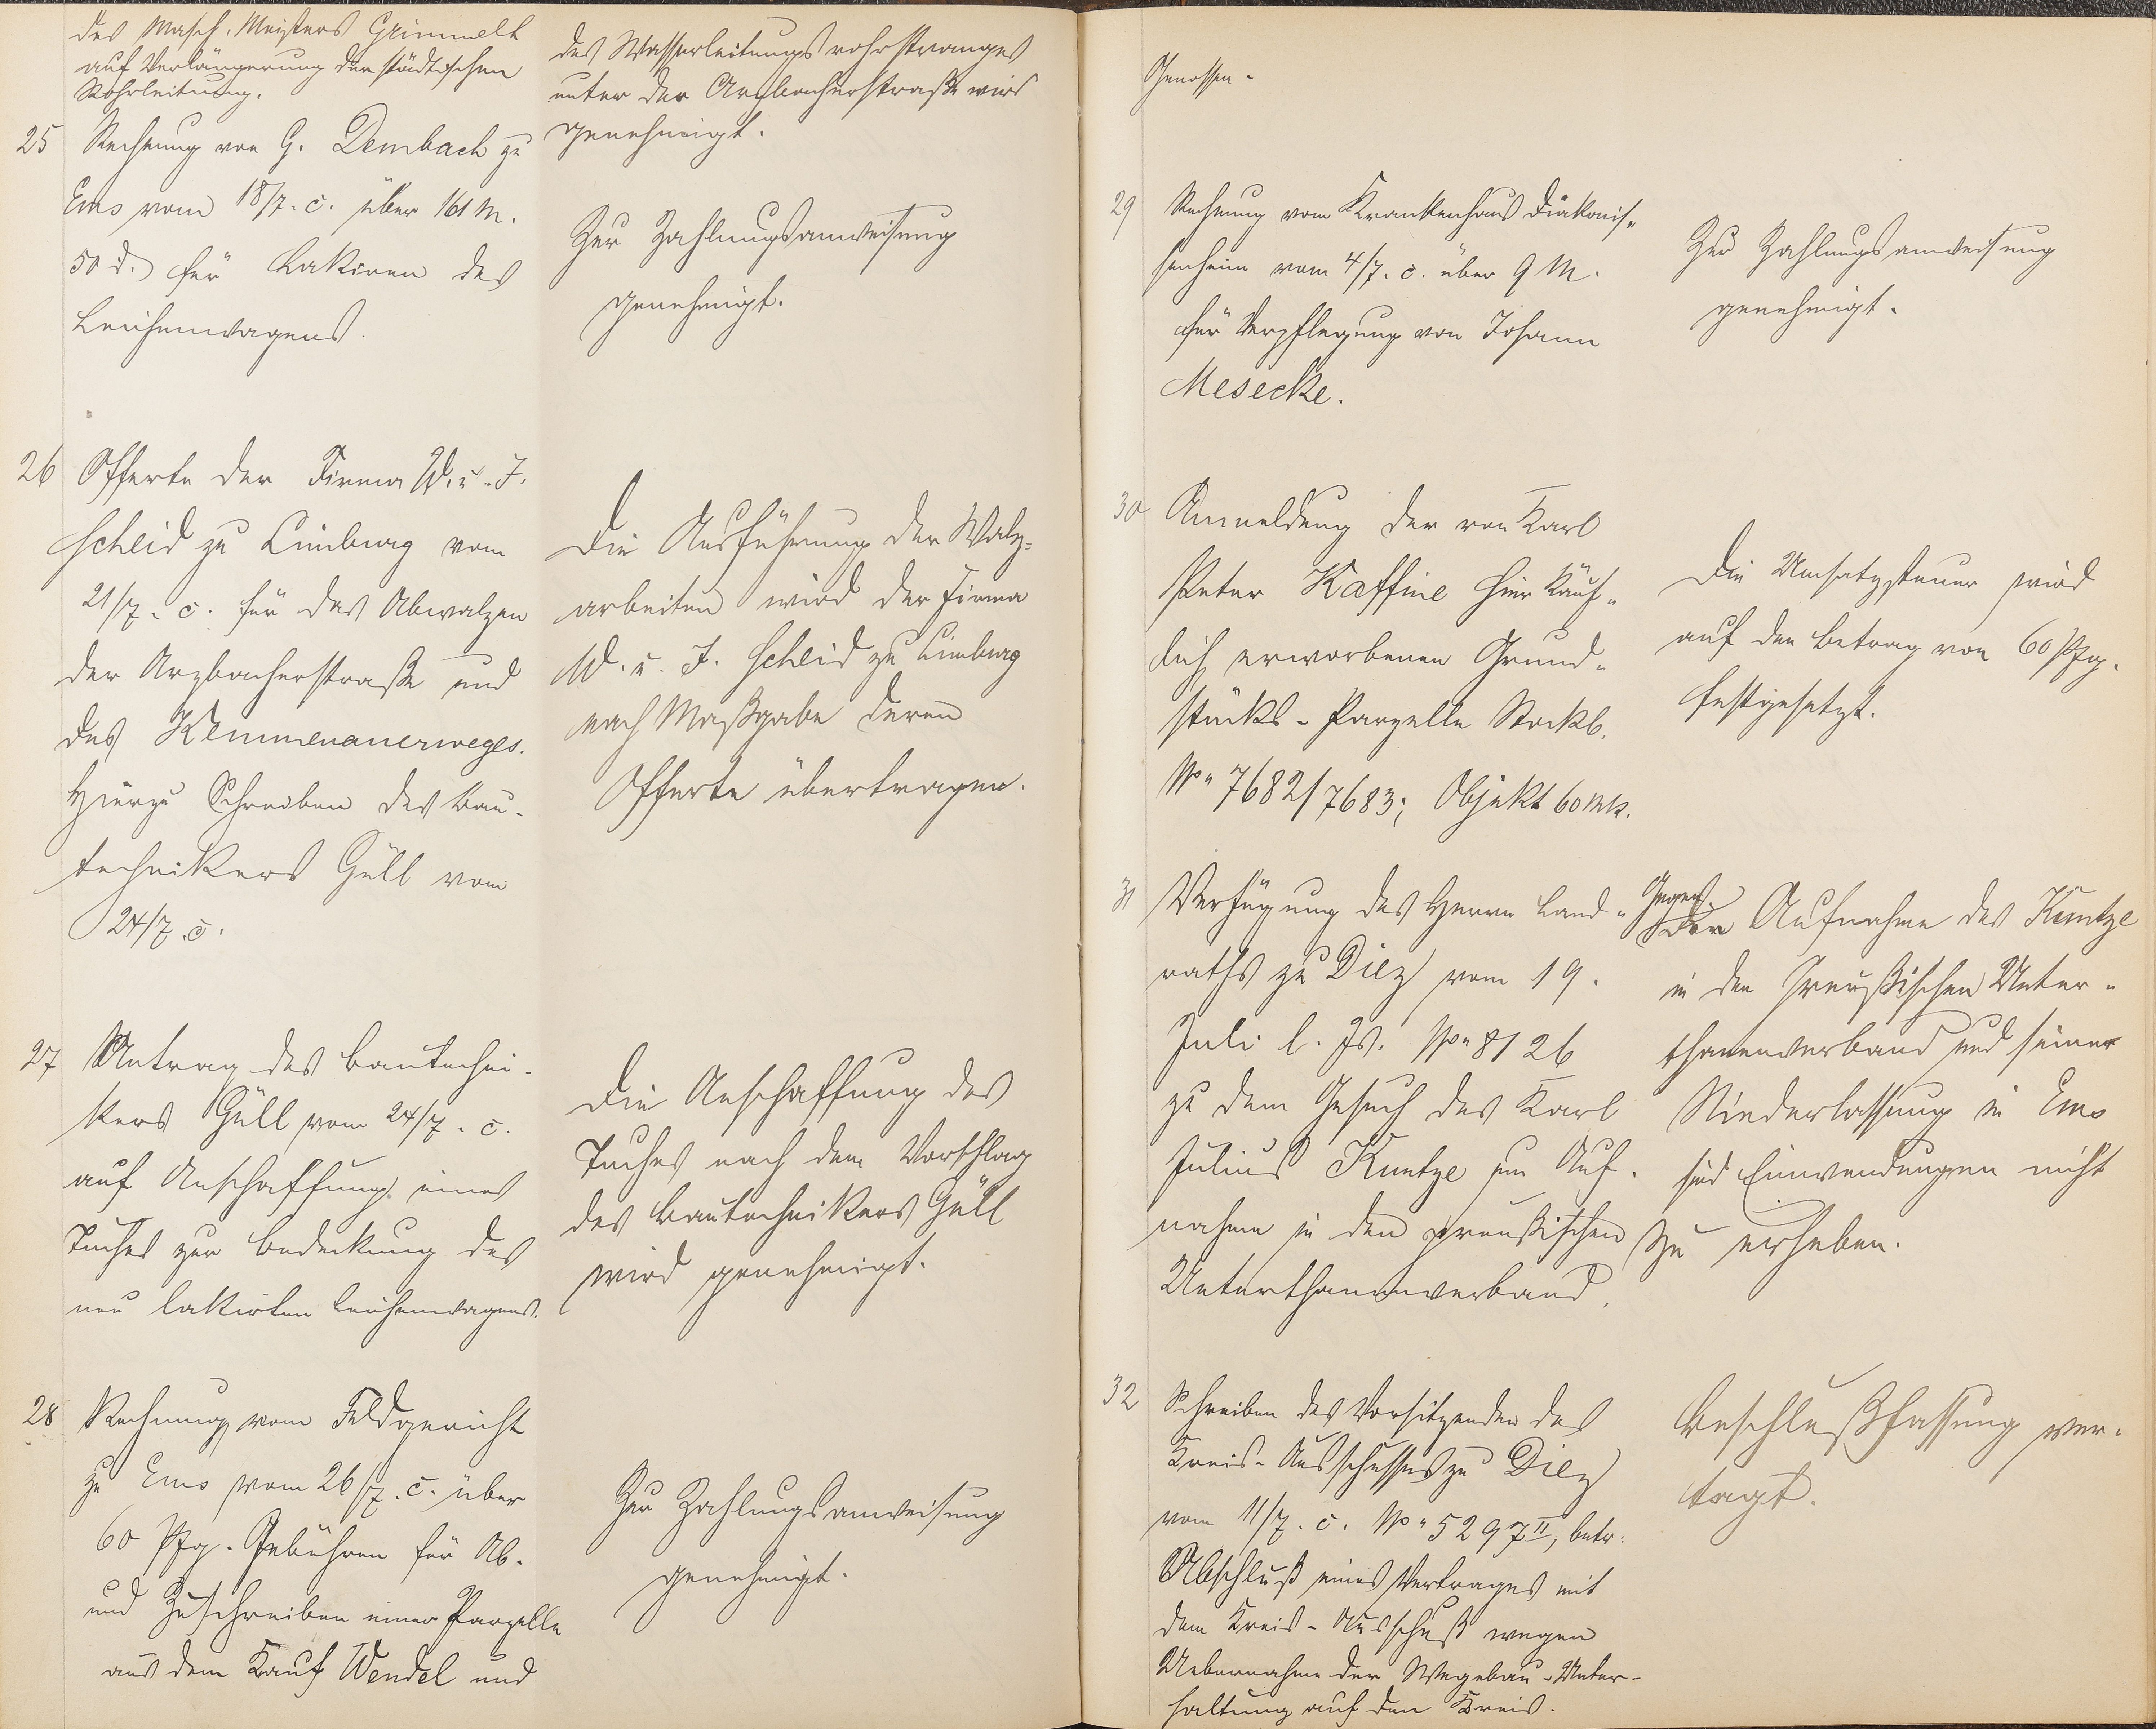 des Masch. Meisters Grimmelt
auf Verlängerung der städtischen
Rohrleitung.
des Wasserleitungsrohrstranges
unter der Arzbacherstraße wird
genehmigt.
25 Rechnung von G. Dembach zu
Ems vom 18/7. c. über 161 M.
50 d. für Lakiren des
Leichenwagens.
Zur Zahlungsanweisung
genehmigt.
26 Offerte der Firma W. u. J.
Scheid zu Limburg vom
21/7. c. für das Abwalzen
der Arzbacherstraße und
des Kemmenauerweges.
Hierzu Schreiben des Bau-
technikers Güll vom
24/7. c.
Die Ausführung der Walz-
arbeiten wird der Firma
W. u. J. Scheid zu Limburg
nach Maßgabe deren
Offerte übertragen.
27 Antrag des Bautechni-
kers Güll vom 24/7. c.
auf Anschaffung eines
Tuches zur Bedeckung des
neu lakirten Leichenwagens.
Die Anschaffung des
Tuches nach dem Vorschlag
des Bautechnikers Güll
wird genehmigt.
28 Rechnung vom Feldgericht
zu Ems vom 26/7. c. über
60 Pfg. Gebühren für Ab-
und Zuschreiben einer Parzelle
aus dem Kauf Wendel und
Zur Zahlungsanweisung
genehmigt.
Genossen.
29 Rechnung vom Krankenhaus Diakonis-
senheim vom 4/7. c. über 9 M.
für Verpflegung von Johann
Mesecke.
Zur Zahlungsanweisung
genehmigt.
30 Anmeldung der von Karl
Peter Kaffine hier käuf-
lich erworbenen Grund-
stücks-Parzelle Stockb.
No 7682/7683; Objekt 60 Mk.
Die Umsatzsteuer wird
auf den Betrag von 60 Pfg.
festgesetzt.
31 Verfügung des Herrn Land-
raths zu Diez vom 19.
Juli l. Js. No 8126
zu dem Gesuch des Karl
Julius Kuntze um Auf-
nahme in den preußischen
Unterthanenverband.
Gegen
der Aufnahme des Kuntze
in den Preußischen Unter-
thanenverband und seiner
Niederlassung in Ems
sind Einwendungen nicht
zu erheben.
32 Schreiben des Vorsitzenden des
Kreis-Ausschusses zu Diez
vom 11/7. c. No 5297 II, betr.
Abschluß eines Vertrages mit
dem Kreis-Ausschuß wegen
Uebernahme der Wegebau-Unter-
haltung auf den Kreis.
Beschlußfassung ver-
tagt.